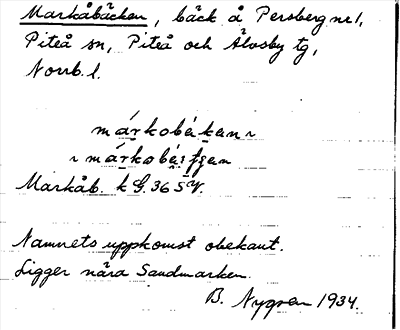 Markåbäcken, bäck å Persberg nr 1,
Piteå sn, Piteå och Älvsby tg,
Norrb. l.
Markåb. k G. 36 SV.
Namnets uppkomst obekant.
Ligger nära Sandmarken.
B. Nygren 1934.